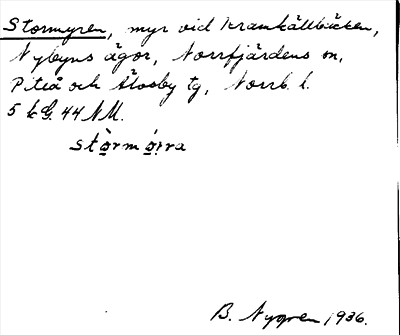 Stormyren, myr vid Kramkällbäcken,
Nybyns ägor, Norrfjärdens sn,
Piteå och Älvsby tg, Norrb. l.
5 kG. 44 NM.
stòrmó̤rra
B. Nygren 1936.